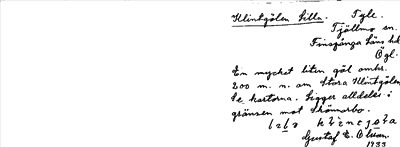 Klintgölen Lilla. Tgle.
Tjällmo sn.
Finspånga läns hd
Ögl.
En mycket liten göl omkr.
200 m. n. om Stora Klintgölen
Se kartorna. Ligger alldeles i
gränsen mot Skönarbo.
Gustaf E. Olsson.
1933